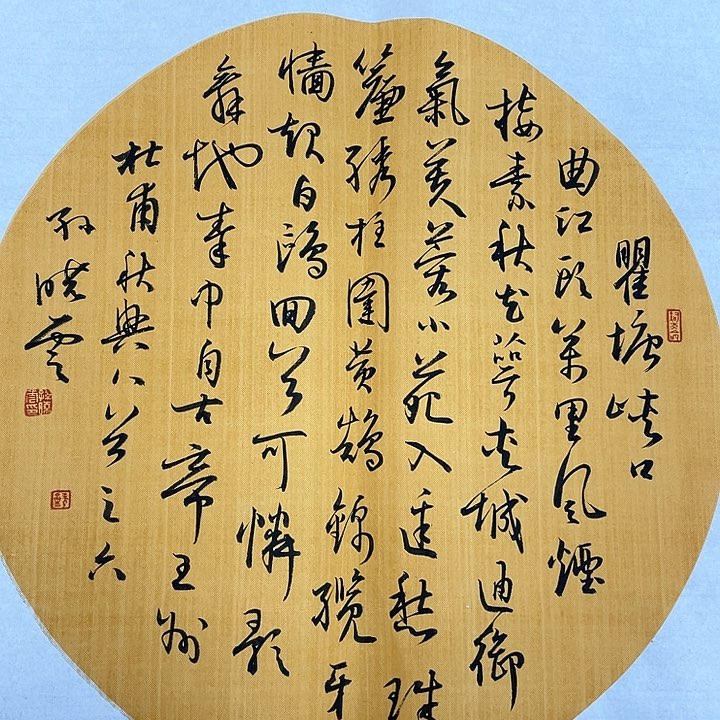 瞿塘峽口
曲江頭萬里風煙
接素秋花萼夾城通御
氣芙蓉小苑入邊愁珠
簾繡柱圍黃鵠錦纜牙
檣起白鷗回首可憐歌
舞地秦中自古帝王州
杜甫秋興八首之六
孫曉雲